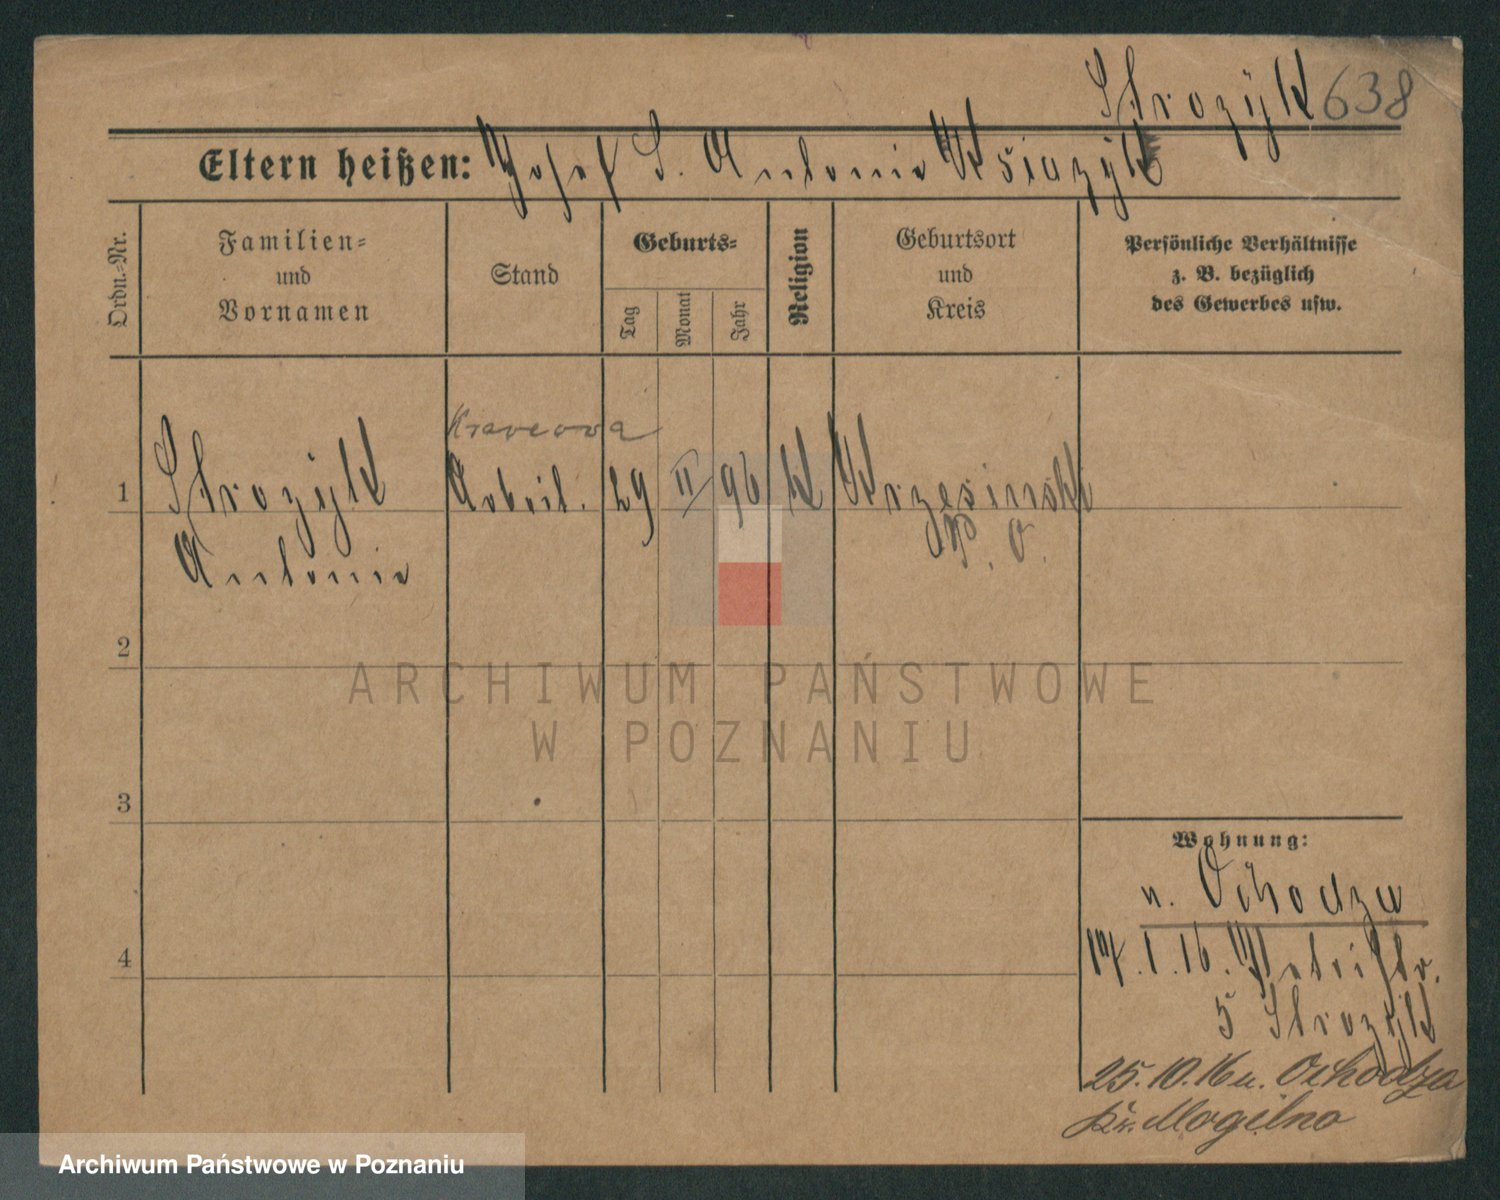 Strozÿk 638
Eltern heißen: Josef S. Antonie Ksiazÿk
Ordn.-Nr.
Familien-
und
Vornamen
Stand
Geburts-
Tag
Monat
Jahr
Religion
Geburtsort
und
Kreis
Persönliche Verhältnisse
z. B. bezüglich
des Gewerbes usw.
1 Strozÿk Arbeit. 29 II 96 K Krzesinski
Antonie P. O.
2
3
4
Wohnung:
n. Ochodza
17.1.16. Petristr.
5 Strozÿk
25.10.16 n. Ochodza
Kr. Mogilno
ARCHIWUM PAŃSTWOWE
W POZNANIU
Archiwum Państwowe w Poznaniu